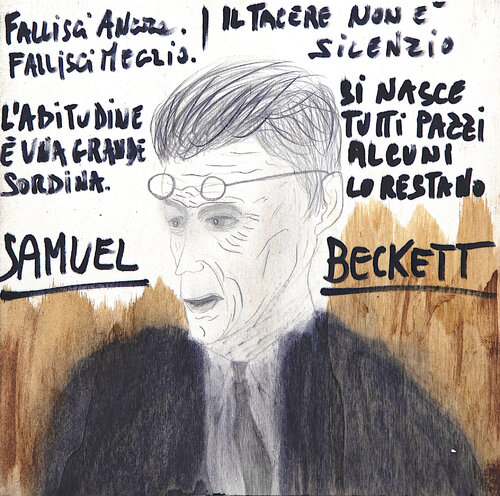 FALLISCI ANCORA.
FALLISCI MEGLIO.
IL TACERE NON E'
SILENZIO
L'ABITUDINE
È UNA GRANDE
SORDINA.
SI NASCE
TUTTI PAZZI
ALCUNI
LO RESTANO
SAMUEL
BECKETT